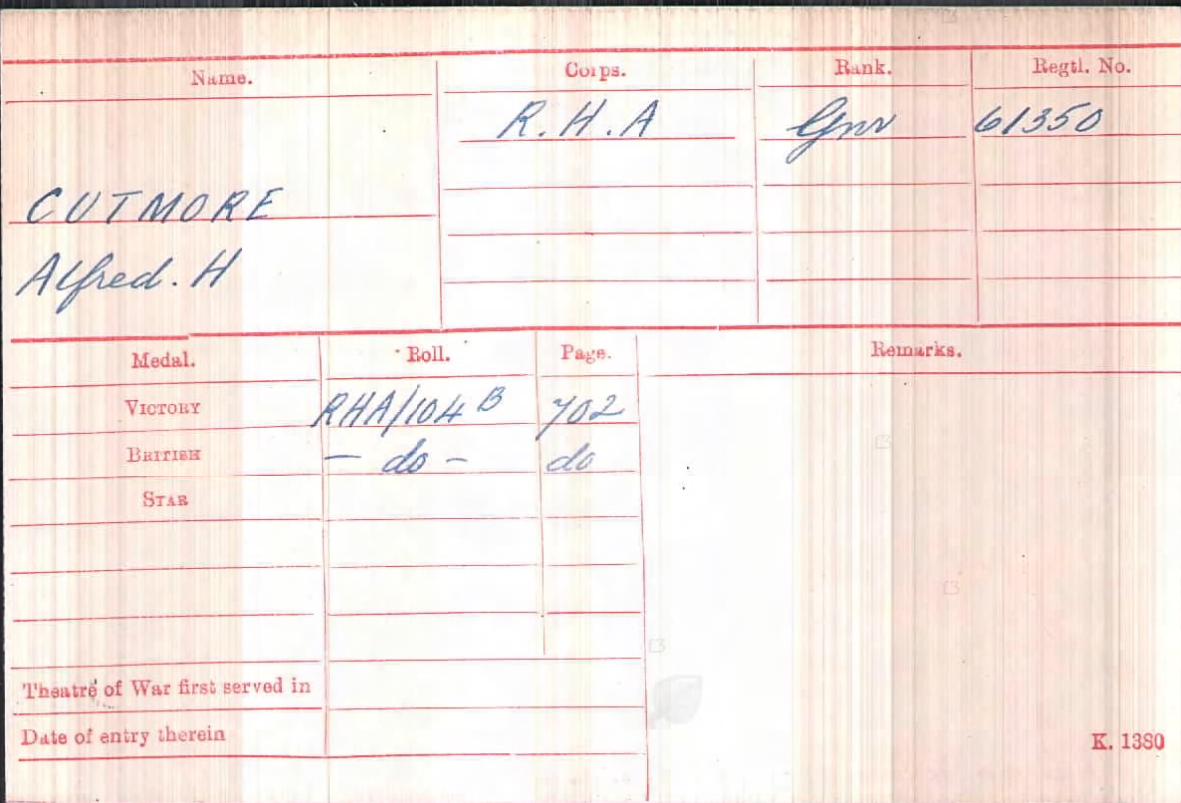 Name. Corps. Rank. Regtl. No.
R.H.A Gnr 61350
CUTMORE
Alfred. H
Medal. Roll. Page. Remarks.
VICTORY RHA/104 B 702
BRITISH - do - do
STAR
Theatre of War first served in
Date of entry therein
K. 1380